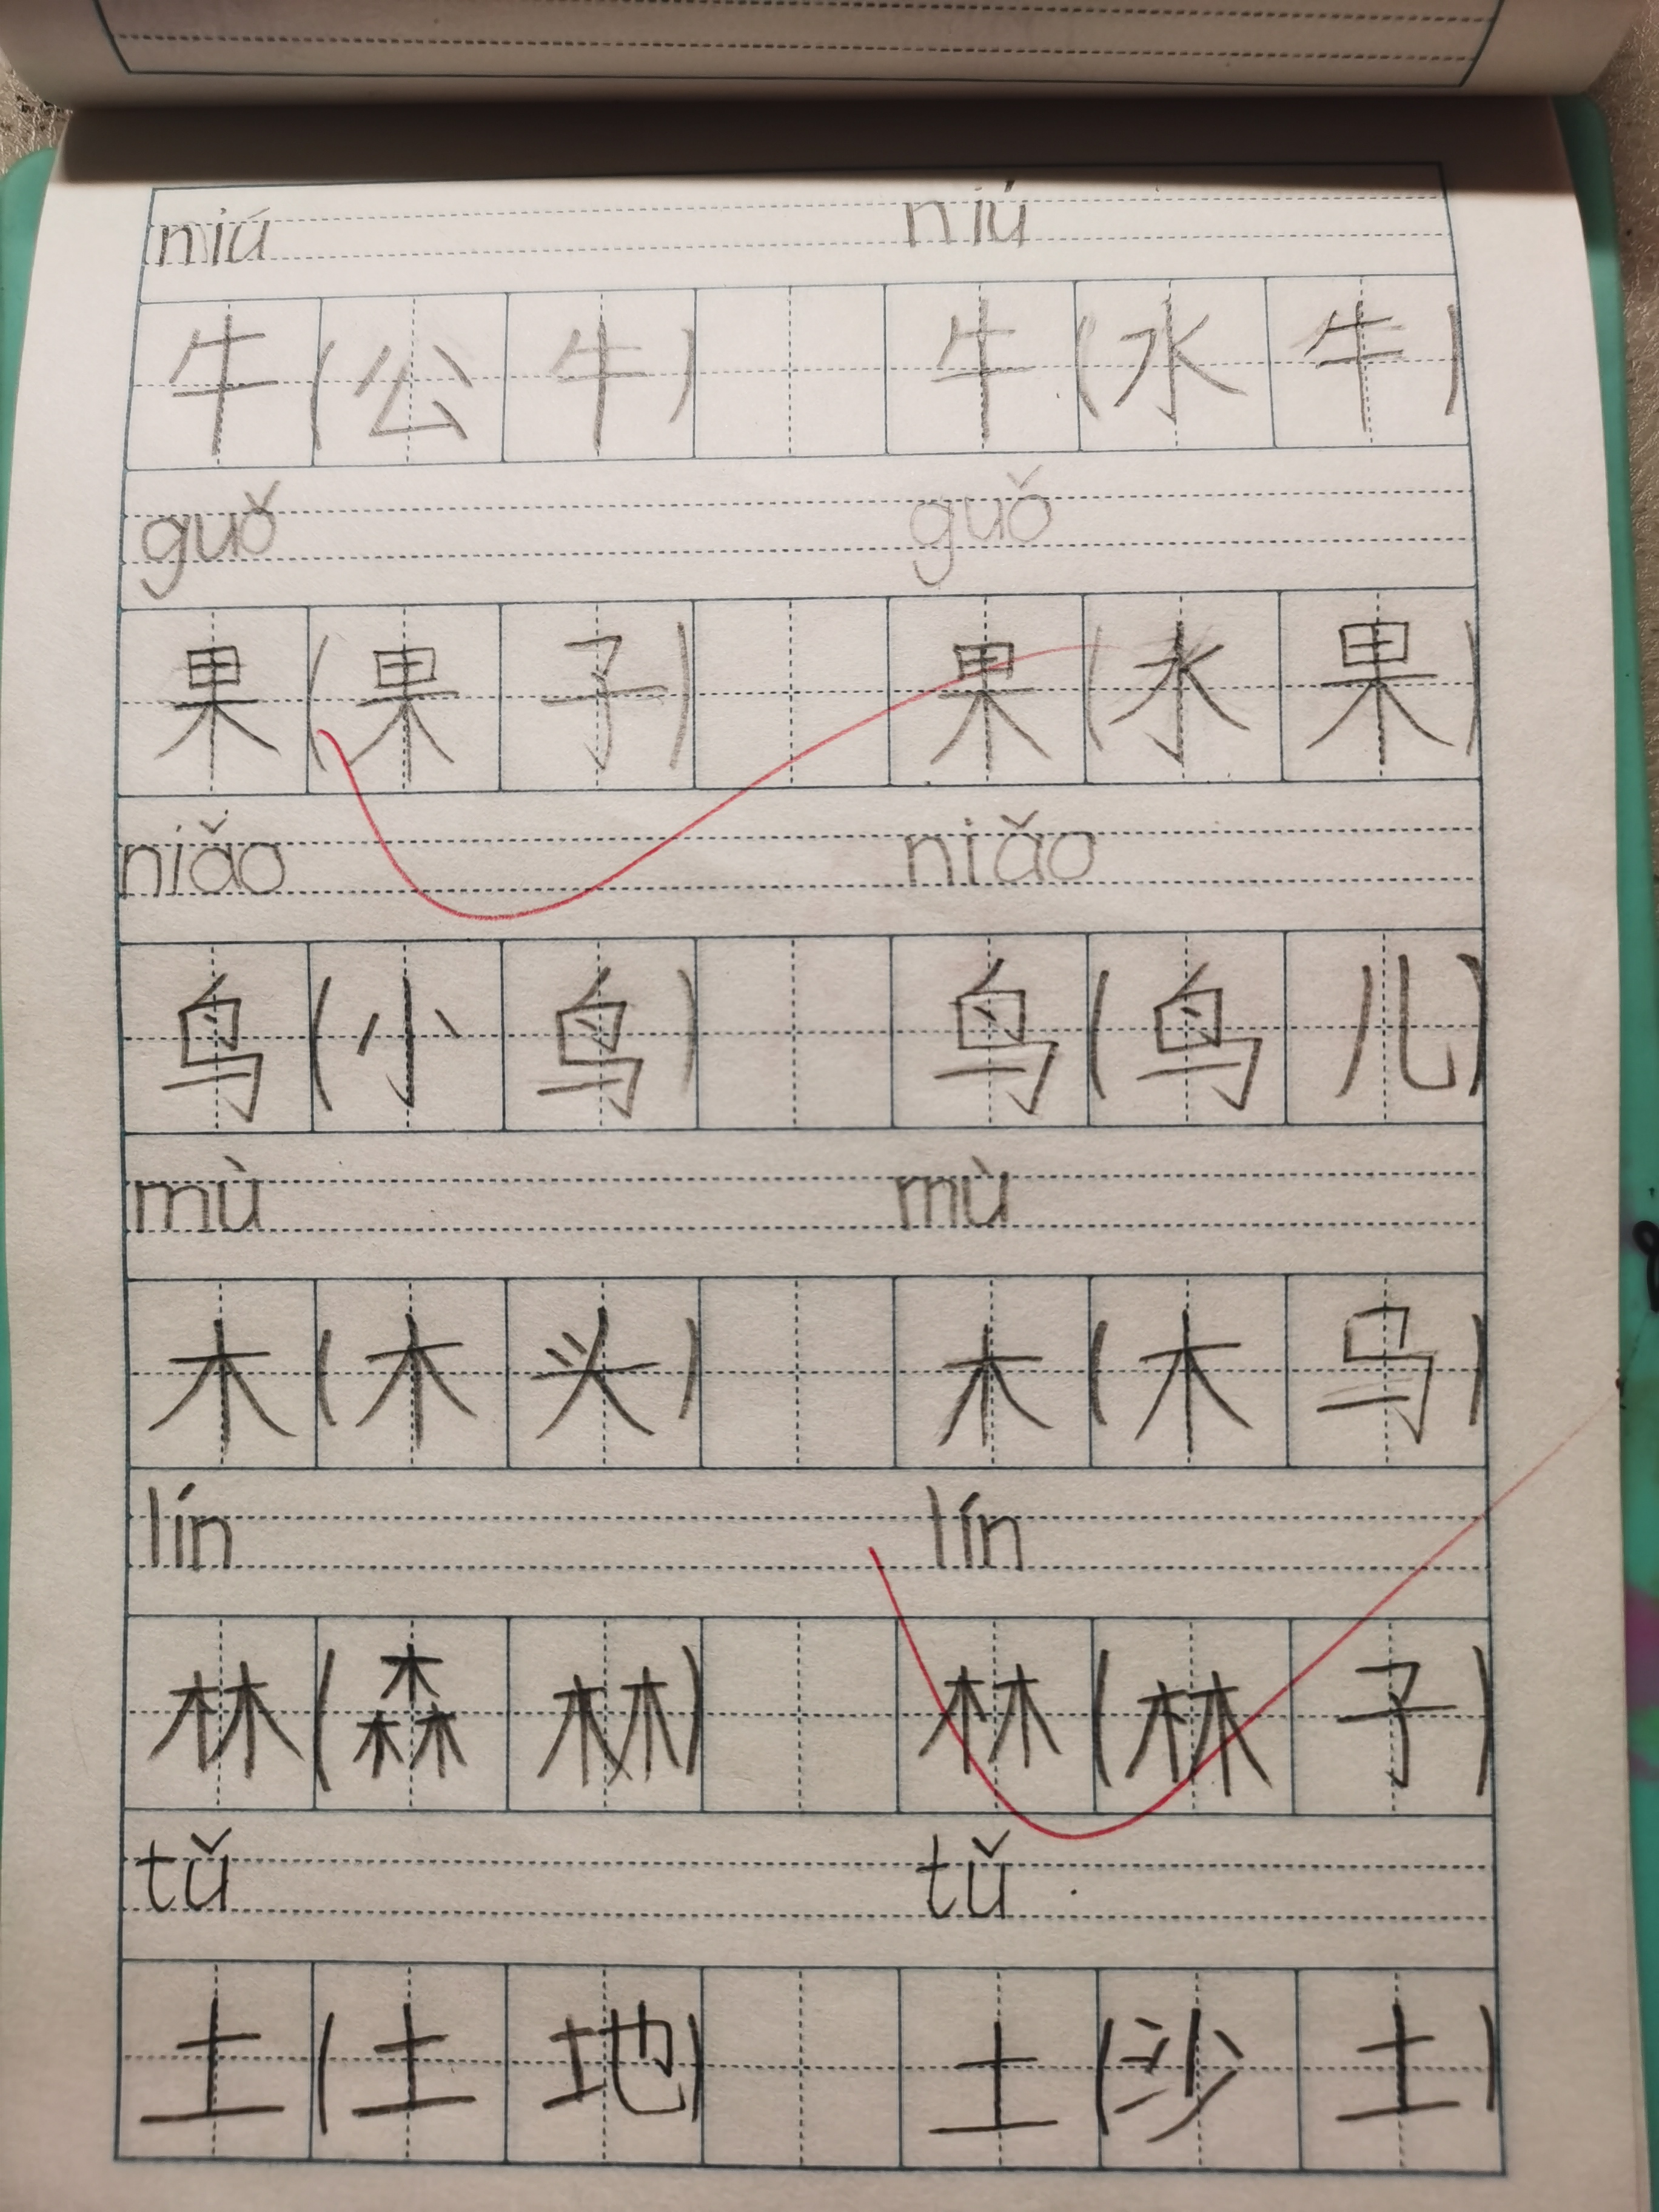 niú niú
牛(公牛) 牛(水牛)
guǒ guǒ
果(果子) 果(水果)
niǎo niǎo
鸟(小鸟) 鸟(鸟儿)
mù mù
木(木头) 木(木马)
lín lín
林(森林) 林(林子)
tǔ tǔ
土(土地) 土(沙土)